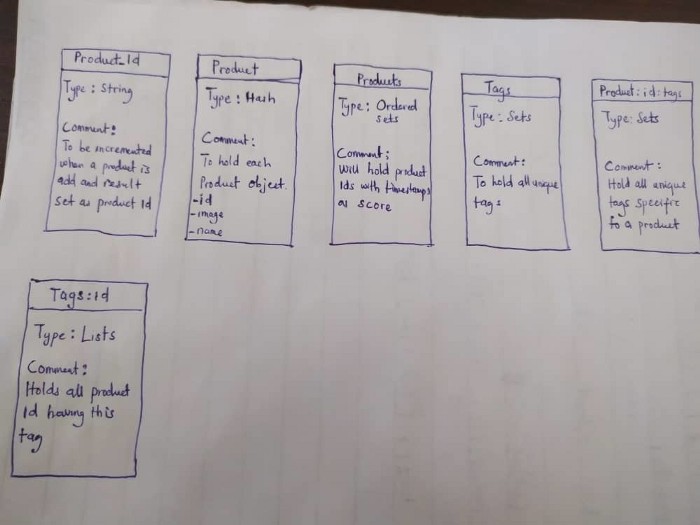 Product_Id
Type : String
Comment :
To be incremented
when a product is
add and result
set as product Id
Product
Type : Hash
Comment :
To hold each
Product object.
-id
-image
-name
Products
Type : Ordered
sets
Comment ;
Will hold product
Ids with timestamps
as score
Tags
Type : Sets
Comment :
To hold all unique
tags
Product : id : tags
Type : Sets
Comment :
Hold all unique
tags specific
to a product
Tags : id
Type : Lists
Comment :
Holds all product
Id having this
tag